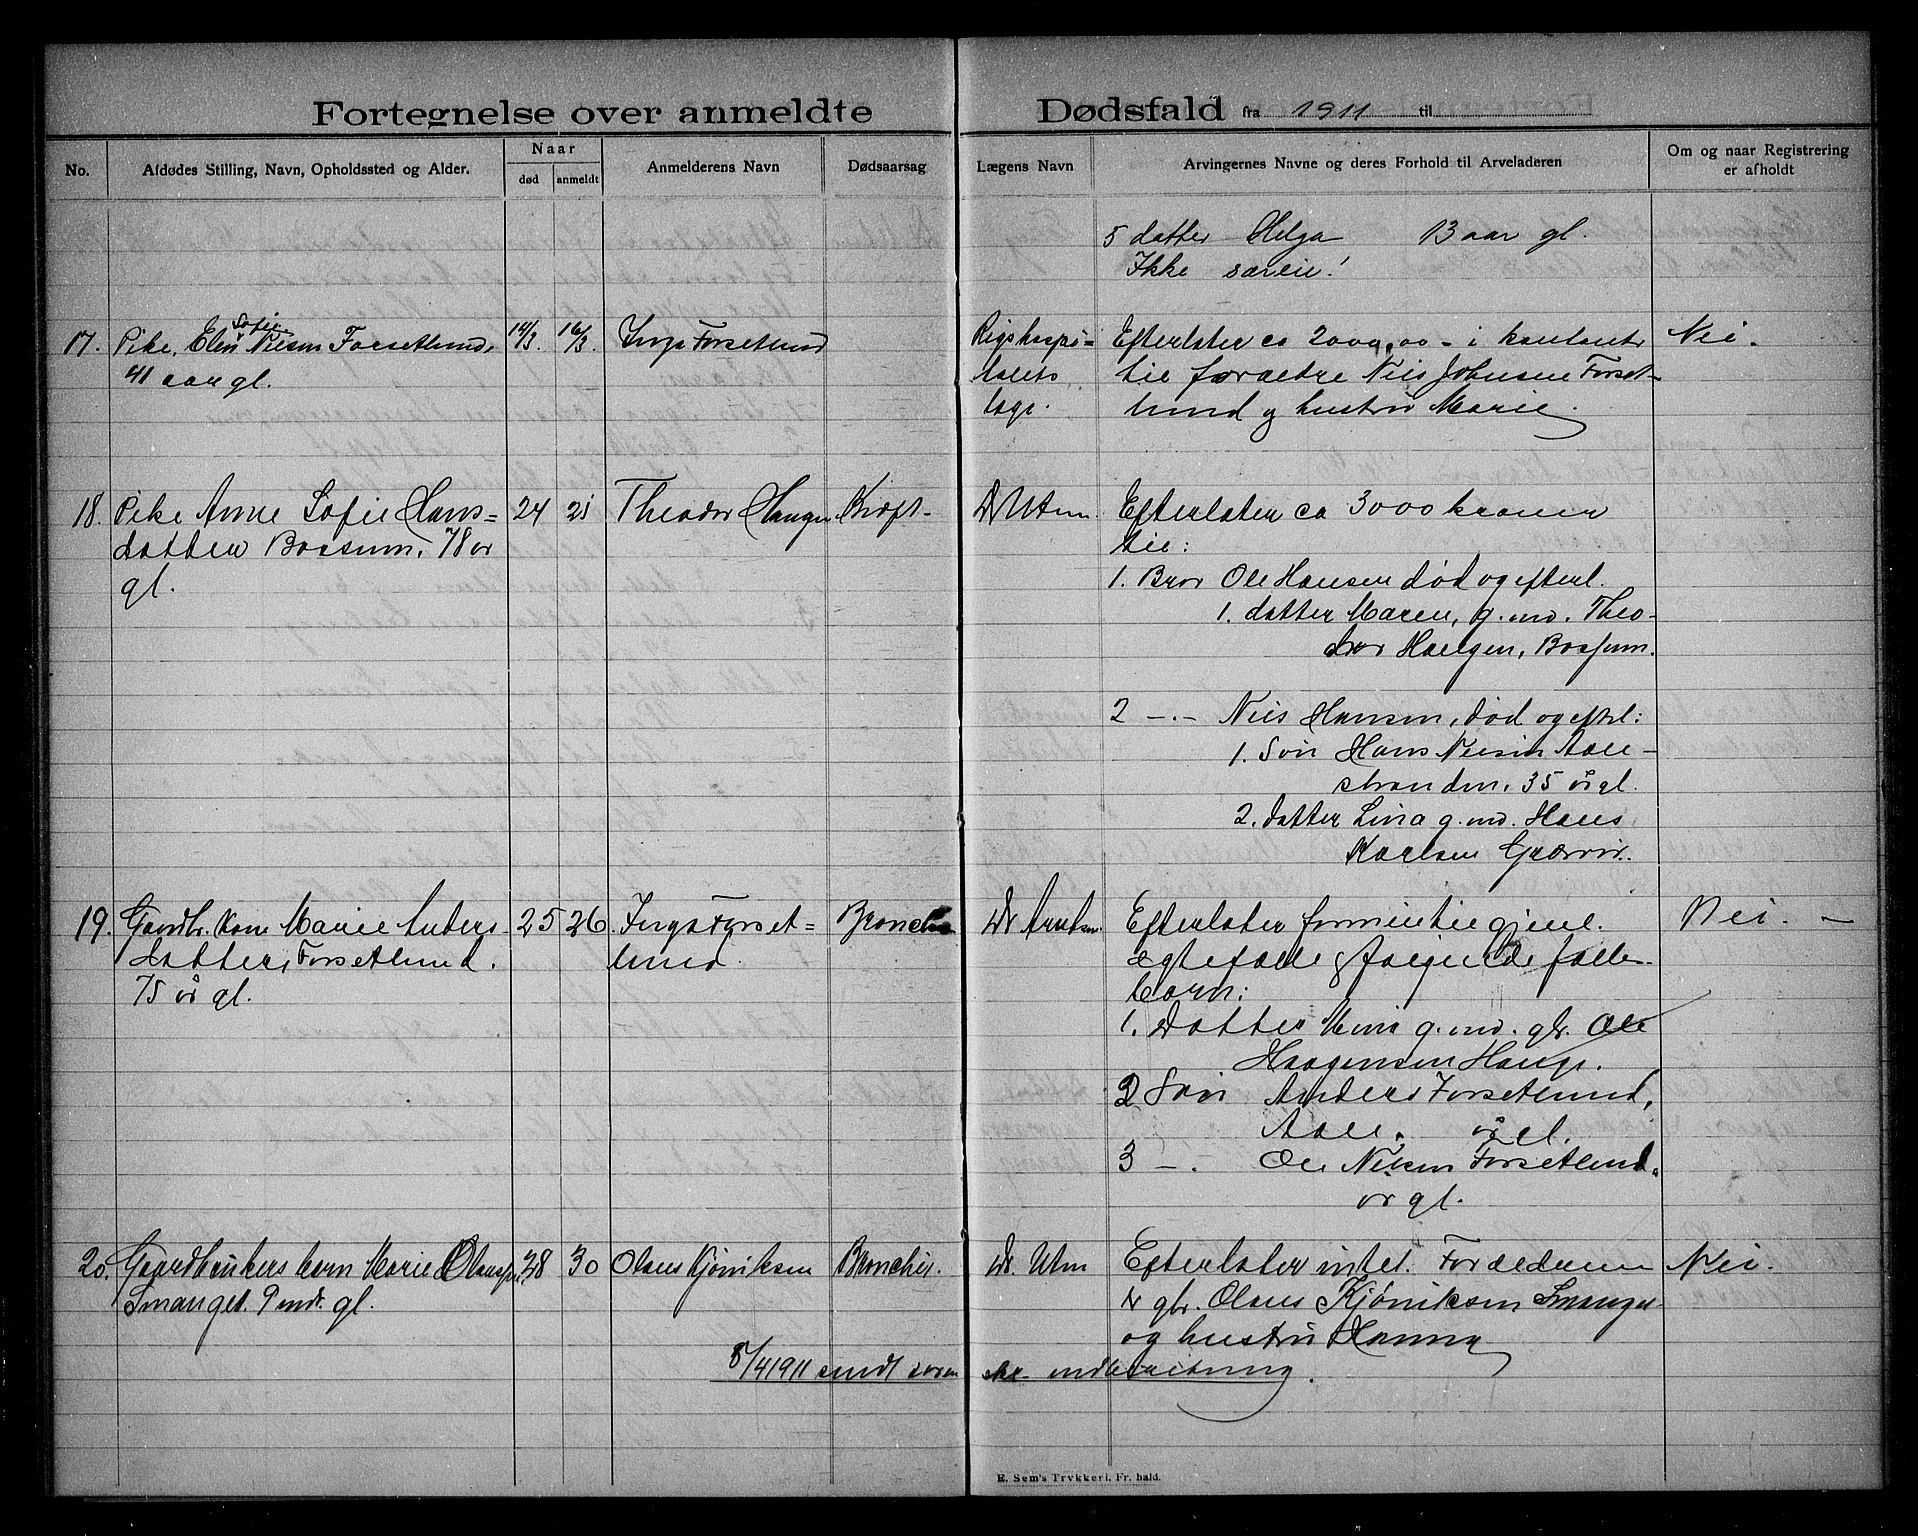 Fortegnelse over anmeldte Dødsfald fra 1911 til
No.
Afdødes Stilling, Navn, Opholdssted og Alder.
Naar
død
anmeldt
Anmelderens Navn
Dødsaarsag
Lægens Navn
Arvingernes Navne og deres Forhold til Arveladeren
Om og naar Registrering
er afholdt
5 datter Helga 13 aar gl.
Ikke særeie!
17. Pike, Elen Sofie Nielsen Forsetlund,
41 aar gl.
14/3. 16/3.
Inga Forsetlund
Rigshospi=
talets
læge.
Efterlater ca 2000,00 - i kontant
til forældre Niels Johnsen Forset-
lund og hustru Marie.
Nei.
18. Pike Anne Sofie Hans=
datter Bossum, 78 år
gl.
24 25
Theodor Haugen
Kræft
Dr Utm.
Efterlater ca 3000 kroner
til:
1. Bror Ole Hansen død og efterl.
1. datter Maren, g. m. Theo-
dor Haugen, Bossum.
2 -.- Niels Hansen, død og eftl:
1. Søn Hans Nielsen Aale-
stranden, 35 år gl.
2. datter Lina g. m. Hans
Karlsen
19. Gaardbr. kone Marie Anders
datter, Forsetlund.
75 år gl.
25 26
Inga Forset=
lund.
Bronchit
Dr Arntsen
Efterlater formuen til gjenl.
ægtefælle & følgende fælles
børn:
1. Datter g. m. gbr. Ole
Haagensen Hauge.
2 Søn Anders Forsetlund,
Aale, år gl.
3 -.- Ole Nilsen Forsetlund,
år gl.
Nei. -
20. Gaardbrukers barn Marie Olausen
Smanget. 9 mdr. gl.
28 30
Olaus Kjøniksen
Bronchit.
Dr. Utm
Efterlater intet. Forældrene
er gbr. Olaus Kjøniksen Smanget
og hustru Hanna
Nei.
8/4 1911 sendt soren
skr. indberetning.
E. Sem's Trykkeri. Fr. hald.